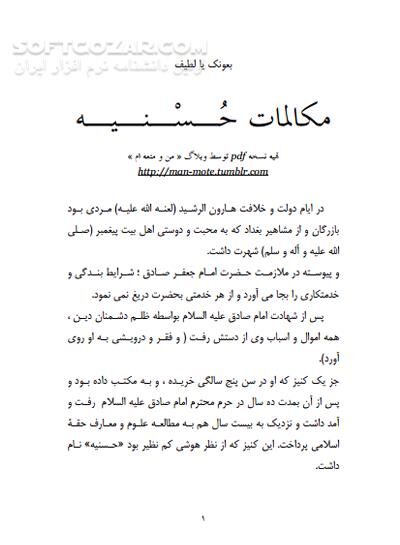 SOFTGOZAR.COM
اولین دانشنامه نرم افزار ایران
بعونک یا لطیف
مکالمات حُسْنیه
تهیه نسخه pdf توسط وبلاگ « من و متعه ام »
http://man-mote.tumblr.com
در ایام دولت و خلافت هارون الرشید (لعنه الله علیه) مردی بود
بازرگان و از مشاهیر بغداد که به محبت و دوستی اهل بیت پیغمبر (صلی
الله علیه و أله و سلم) شهرت داشت.
و پیوسته در ملازمت حضرت امام جعفر صادق ؛ شرایط بندگی و
خدمتکاری را بجا می آورد و از هر خدمتی بحضرت دریغ نمی نمود.
پس از شهادت امام صادق علیه السلام بواسطه ظلم دشمنان دین ،
همه اموال و اسباب وی از دستش رفت ( و فقر و درویشی به او روی
آورد).
جز یک کنیز که او در سن پنج سالگی خریده ، و به مکتب داده بود و
پس از آن بمدت ده سال در حرم محترم امام صادق علیه السلام رفت و
آمد داشت و نزدیک به بیست سال هم به مطالعه علوم و معارف حقۀ
اسلامی پرداخت. این کنیز که از نظر هوشی کم نظیر بود «حسنیه» نام
داشت.
۱